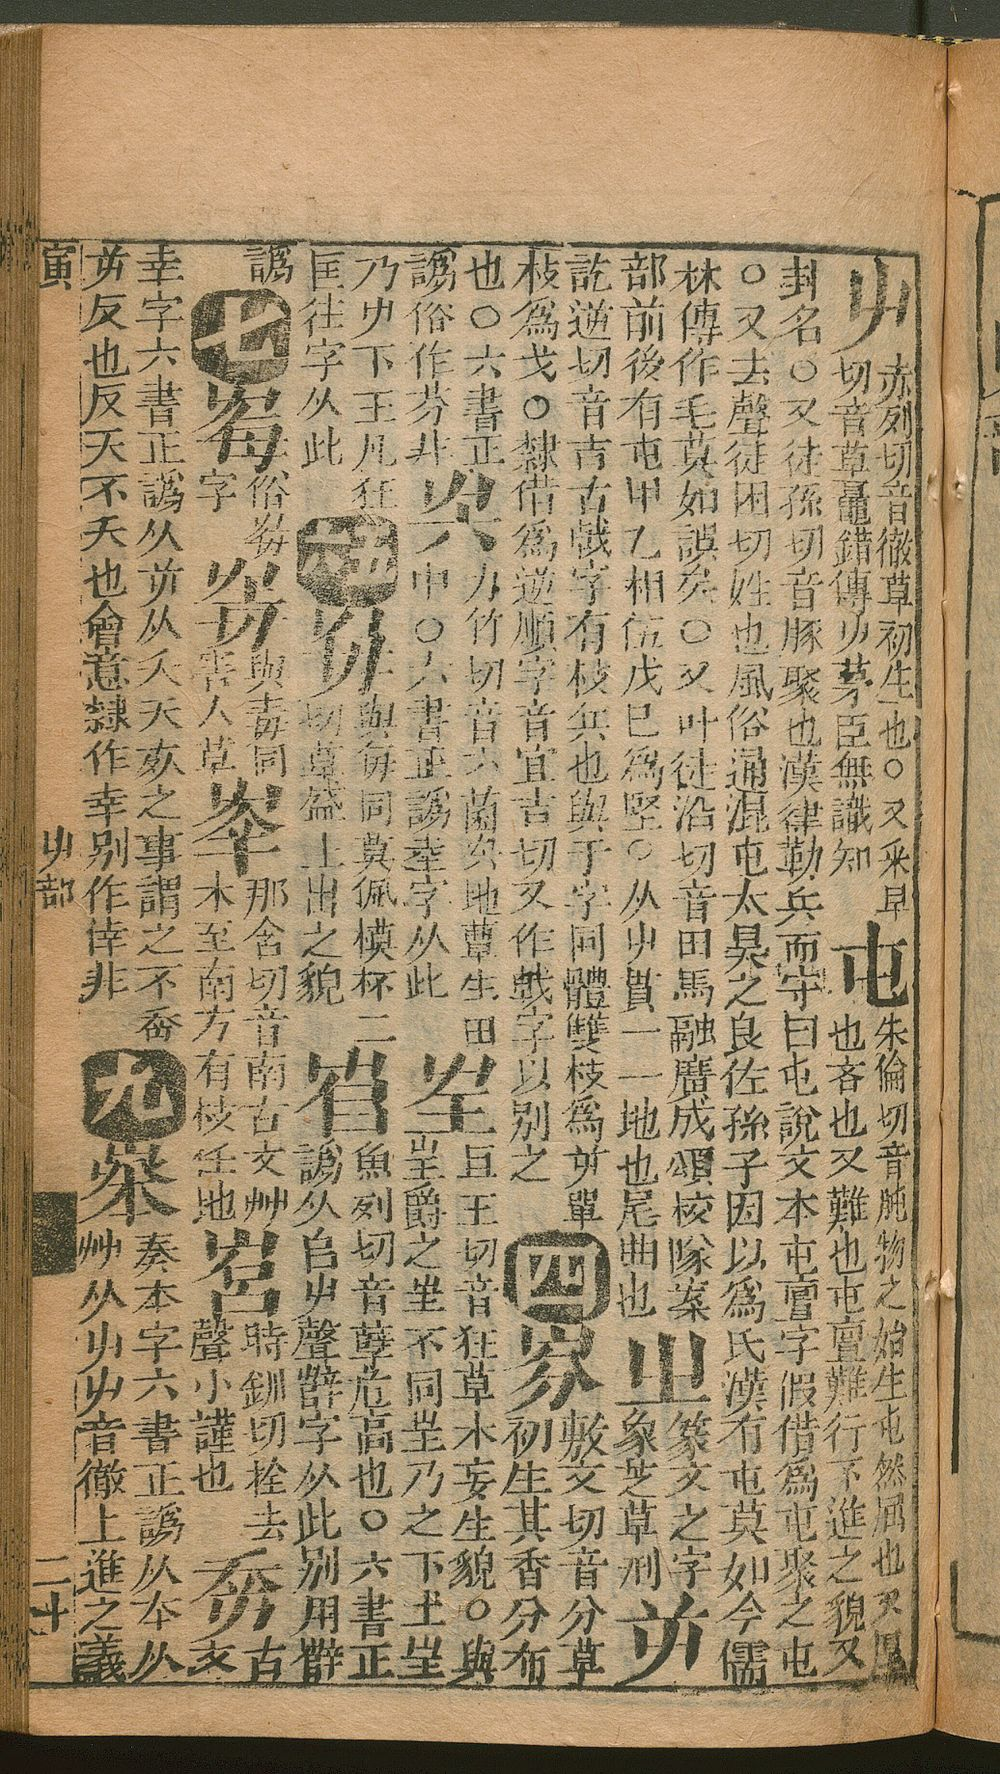 屮 赤列切音徹草初生也○又采早
切音草鼂錯傳屮茅臣無識知
屯 朱倫切音肫物之始生屯然屈也又厚
也吝也又難也屯亶難行不進之貌又
封名○又徒孫切音豚聚也漢律勒兵而守曰屯說文本屯亶字假借爲屯聚之屯
○又去聲徒困切姓也風俗通混屯太昊之良佐孫子因以爲氏漢有屯莫如今儒
林傳作毛莫如誤矣○又叶徒沿切音田馬融廣成頌校隊案
部前後有屯甲乙相伍戊巳爲堅○从屮貫一一地也尾曲也
㞢 篆文之字
象芝草刑
屰
訖逆切音吉古戟字有枝兵也與于字同體雙枝爲屰單
枝爲戈○隸借爲逆順字音宜吉切又作戟字以別之
四
㞣 敷文切音分草
初生其香分布
也○六書正
譌俗作芬非
圥 力竹切音六菌圥地蕈生田
中○六書正譌坴字从此
㞷 且王切音狂草木妄生貌○與
㞷爵之㞷不同㞷乃之下土㞷
乃屮下王凡狂
匡往字从此
與每同莫佩模杯二
切草盛上出之貌
𡴎 魚列切音孽危高也○六書正
譌从𠂤屮聲辥字从此別用辥
譌
七
俗
字
與毒同
害人草
𡴖 那含切音南古文艸
木至南方有枝任地
時釧切拴去
聲小謹也
古
文
幸字六書正譌从屰从夭夭亥之事謂之不㚔
屰反也反夭不夭也會意隸作幸別作倖非
九
奏本字六書正譌从夲从
艸从屮屮音徹上進之義
寅
屮部
二十